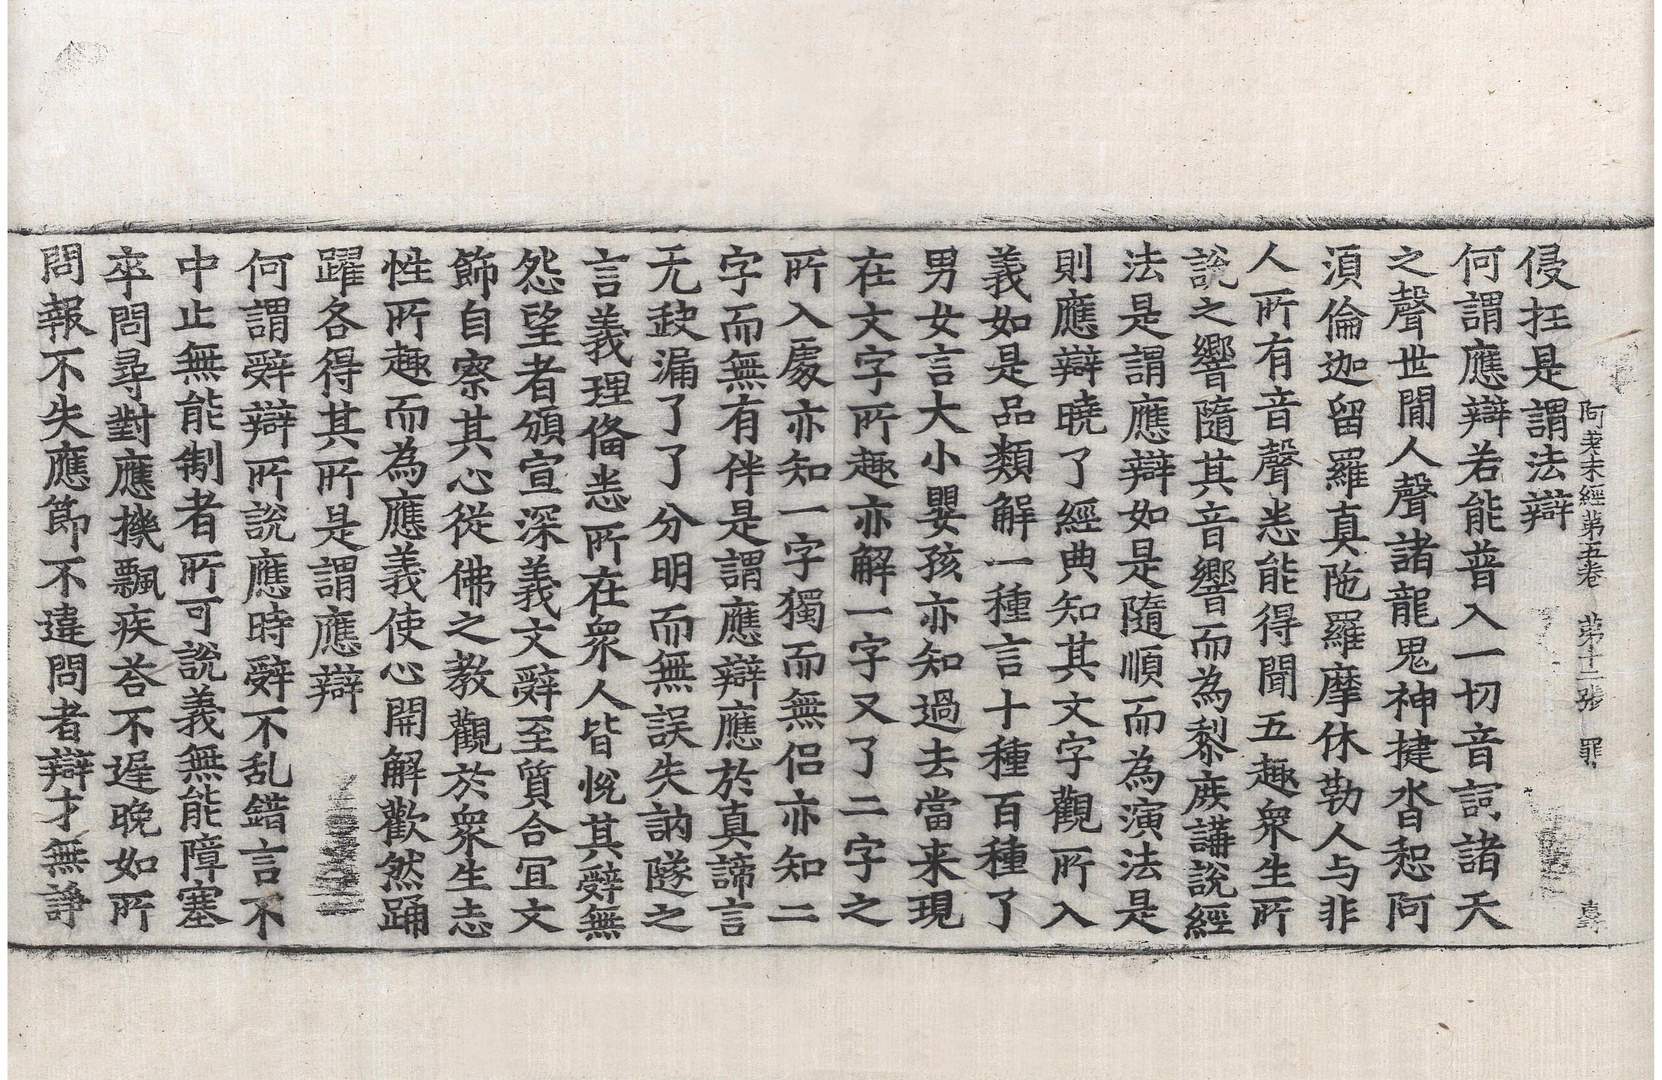 侵抂是謂法辯
阿差末經第五卷　第十二張　罪
何謂應辯若能普入一切音詞諸天
之聲世閒人聲諸龍鬼神揵沓惒阿
湏倫迦留羅真陁羅摩休勒人与非
人所有音聲悉能得聞五趣衆生所
說之響隨其音響而為黎庶講說經
法是謂應辯如是隨順而為演法是
則應辯曉了經典知其文字觀所入
義如是品類解一種言十種百種了
男女言大小嬰孩亦知過去當来現
在文字所趣亦解一字又了二字之
所入處亦知一字獨而無侣亦知二
字而無有伴是謂應辯應於真諦言
无缺漏了了分明而無誤失訥隧之
言義理俻悉所在衆人皆悅其辭無
怨望者頒宣深義文辭至質合冝文
飾自察其心從佛之教觀於衆生志
性所趣而為應義使心開解歡然踊
躍各得其所是謂應辯
何謂辭辯所說應時辭不乱錯言不
中止無能制者所可說義無能障塞
卒問尋對應機飄疾荅不遲晚如所
問報不失應節不違問者辯才無諍